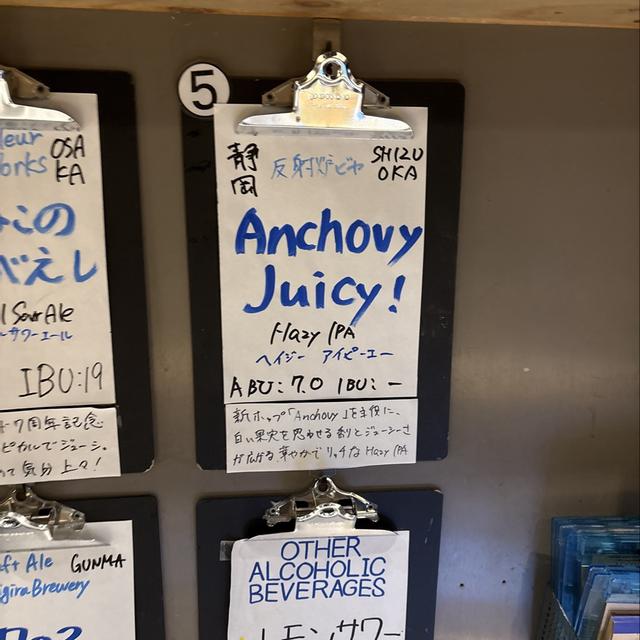 5
静岡
反射炉ビヤ
SHIZU
OKA
Anchovy
Juicy!
Hazy IPA
ヘイジー アイピーエー
ABU: 7.0 IBU: -
新ホップ「Anchovy」を主役に、
白い果実を思わせる香りとジューシーさ
が広がる華やかでリッチな Hazy IPA
OSA
KA
orks
この
べえし
l Sour Ale
サワーエール
IBU:19
7周年記念
ピカルでジューシ。
気分上々!
ft Ale
GUNMA
gira Brewery
OTHER
ALCOHOLIC
BEVERAGES
レモンサワー